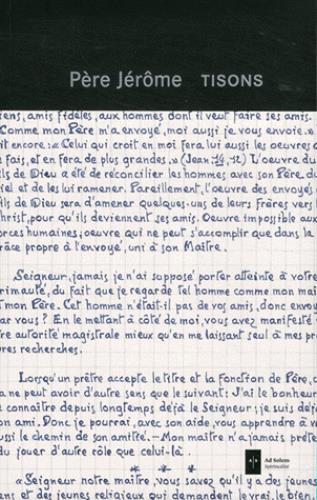 Père Jérôme TISONS
iens, amis fidèles, aux hommes dont il veut faire ses amis.
Comme mon Père m'a envoyé, moi aussi je vous envoie."
it encore: "Celui qui croit en moi fera lui aussi les oeuvres q
fais, et en fera de plus grandes." (Jean 14, 12) L'oeuvre du
ls de Dieu a été de réconcilier les hommes avec son Père, du
iel et de les lui ramener. Pareillement, l'oeuvre des envoyés
ls de Dieu sera d'amener quelques-uns de leurs frères vers l
hrist, pour qu'ils deviennent ses amis. Oeuvre impossible aux
orces humaines; oeuvre qui ne peut s'accomplir que dans la
râce propre à l'envoyé, uni à son Maître.
Seigneur, jamais je n'ai supposé porter atteinte à votre
rimauté, du fait que je regarde tel homme comme mon maî
t mon Père. Cet homme n'était-il pas de vos amis, donc envoy
ar vous? En le mettant à côté de moi, vous avez manifesté
tre autorité magistrale mieux qu'en me laissant seul à mes pro
res recherches.
Lorsqu'un prêtre accepte le titre et la fonction de Père, c
a ne peut avoir d'autre sens que le suivant: J'ai le bonheur
connaître depuis longtemps déjà le Seigneur; je suis déjà
on ami. Donc je pourrai, avec son aide, vous apprendre à v
ussi le chemin de son amitié. - Mon maître n'a jamais préte
du jouer d'autre rôle que celui-là.
"Seigneur notre maître, vous savez qu'il y a des jeunes
ens et des jeunes religieux qui demandent le vrai, le tout
Ad Solem
Spiritualité